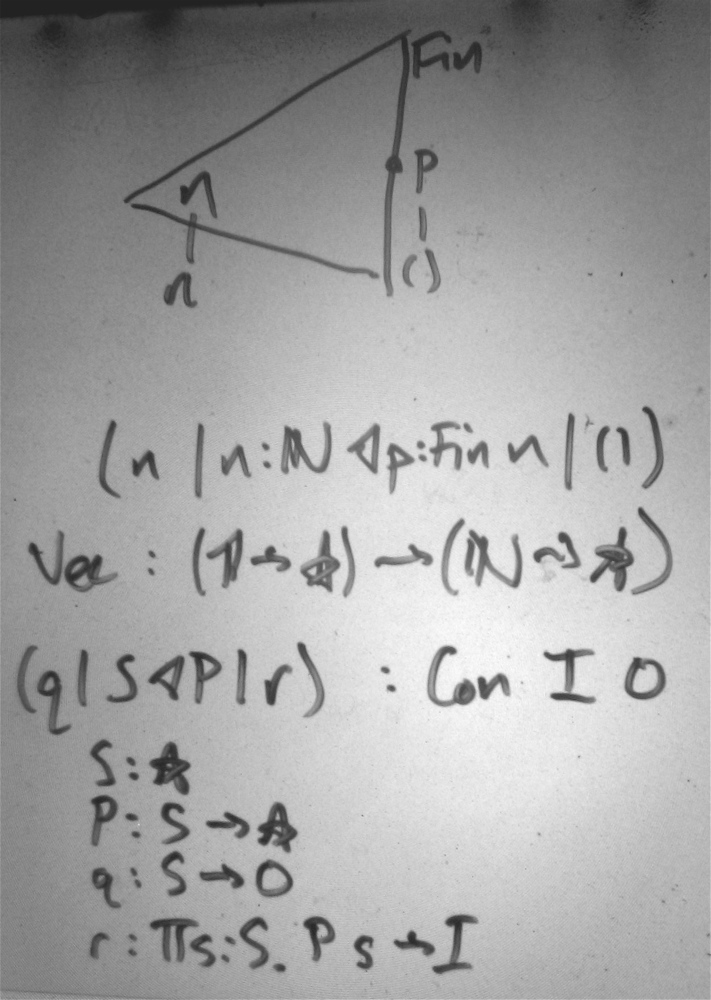 Fin
n p
n ()
(n | n : ℕ ◁ p : Fin n | ())
Vec : (𝟙 → ★) → (ℕ → ★)
(q | S ◁ P | r) : Con I O
S : ★
P : S → ★
q : S → O
r : Πs : S. P s → I